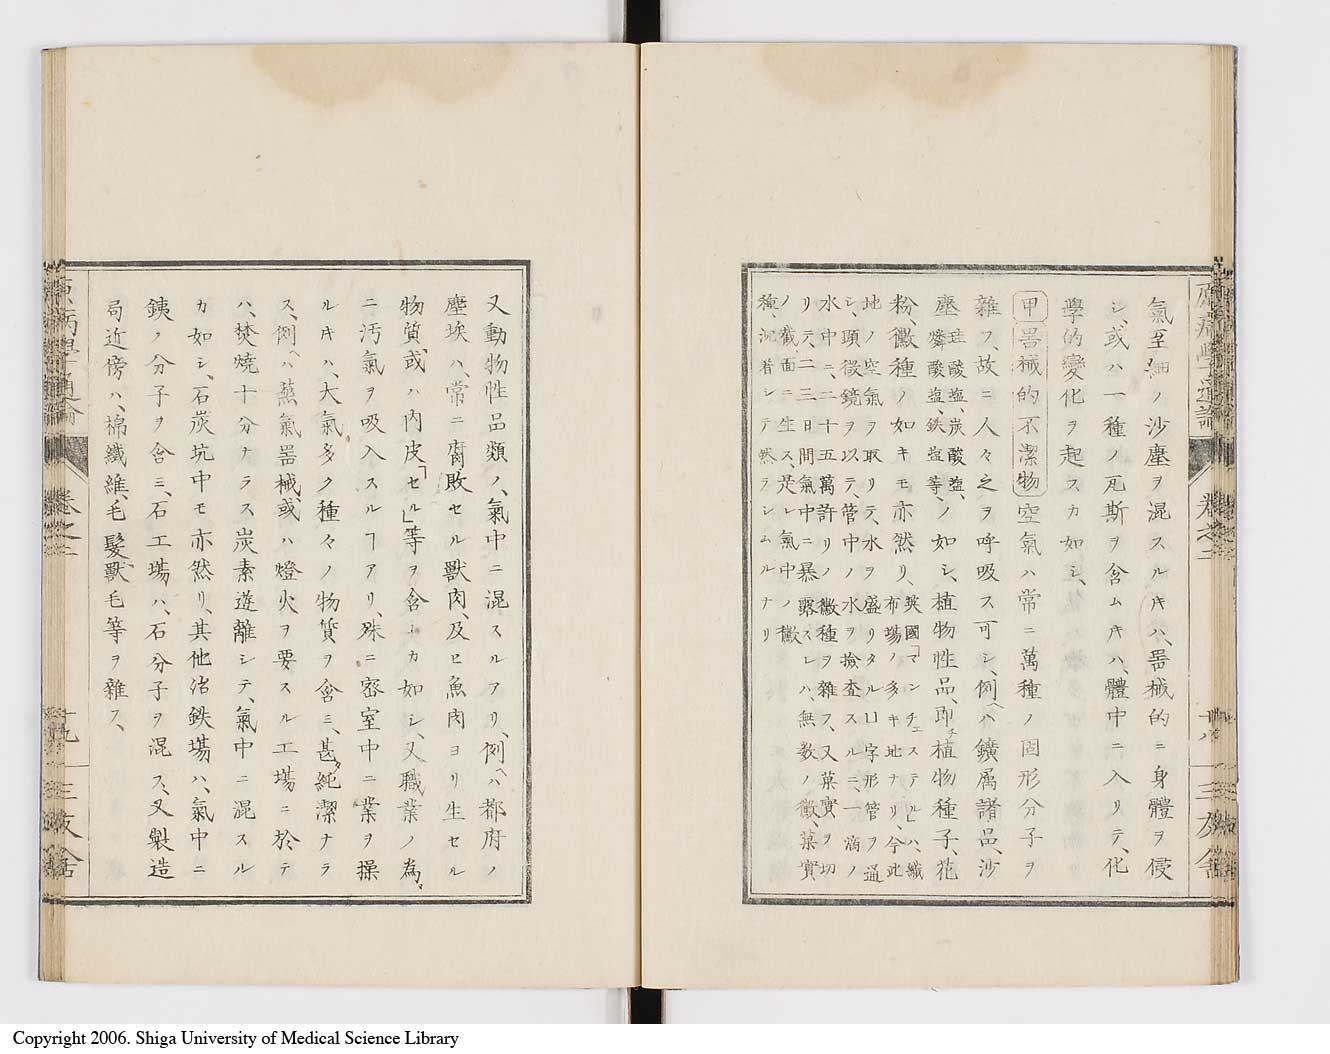 原病學通論
卷之二
十八
三友舎
氣至細ノ沙塵ヲ混スルキハ、噐械的ニ身體ヲ侵
シ、或ハ一種ノ瓦斯ヲ含ムキハ、體中ニ入リテ、化
學的變化ヲ起スカ如シ、
甲噐械的不潔物 空氣ハ常ニ萬種ノ固形分子ヲ
雜フ、故ニ人々之ヲ呼吸ス可シ、例ヘハ鑛属諸品、沙
塵、硅酸塩、炭酸塩、燐酸塩、鉄塩等、ノ如シ、植物性品、即チ植物種子、花
粉黴種ノ如キモ亦然リ、英國「マンチェステル」ハ、纎
布場ノ多キ地ナリ、今此
地ノ空氣ヲ取リテ、水ヲ盛リタル凵字形管ヲ通
シ、顕微鏡ヲ以テ、管中ノ水ヲ撿査スルニ、一滴ノ
水中ニ、二十五萬許リノ黴種ヲ雜フ、又菓實ヲ切
リテ、二三日間氣中ニ暴露スレハ無数ノ黴、菓實
ノ截面ニ生ス、是レ氣中ノ黴
種、沉着シテ然ラシムルナリ
又動物性品類ノ、氣中ニ混スルアリ、例ヘハ都府ノ
塵埃ハ、常ニ腐敗セル獸肉、及ヒ魚肉ヨリ生セル
物質或ハ內皮「セル」等ヲ含ムカ如シ、又職業ノ為メ
ニ汚氣ヲ吸入スルヿアリ、殊ニ密室中ニ業ヲ操
ルキハ、大氣多ク種々ノ物質ヲ含ミ、甚タ純潔ナラ
ス、例ヘハ蒸氣噐械或ハ燈火ヲ要スル工場ニ於テ
ハ、焚燒十分ナラス炭素遊離シテ、氣中ニ混スル
カ如シ、石炭坑中モ亦然リ、其他治鉄場ハ、氣中ニ
銕ノ分子ヲ含ミ、石工場ハ、石分子ヲ混ス、又製造
局近傍ハ、棉纎維、毛髮、獸毛等ヲ雜フ、
原病學通論
卷之二
十九
三友舎
Copyright 2006. Shiga University of Medical Science Library